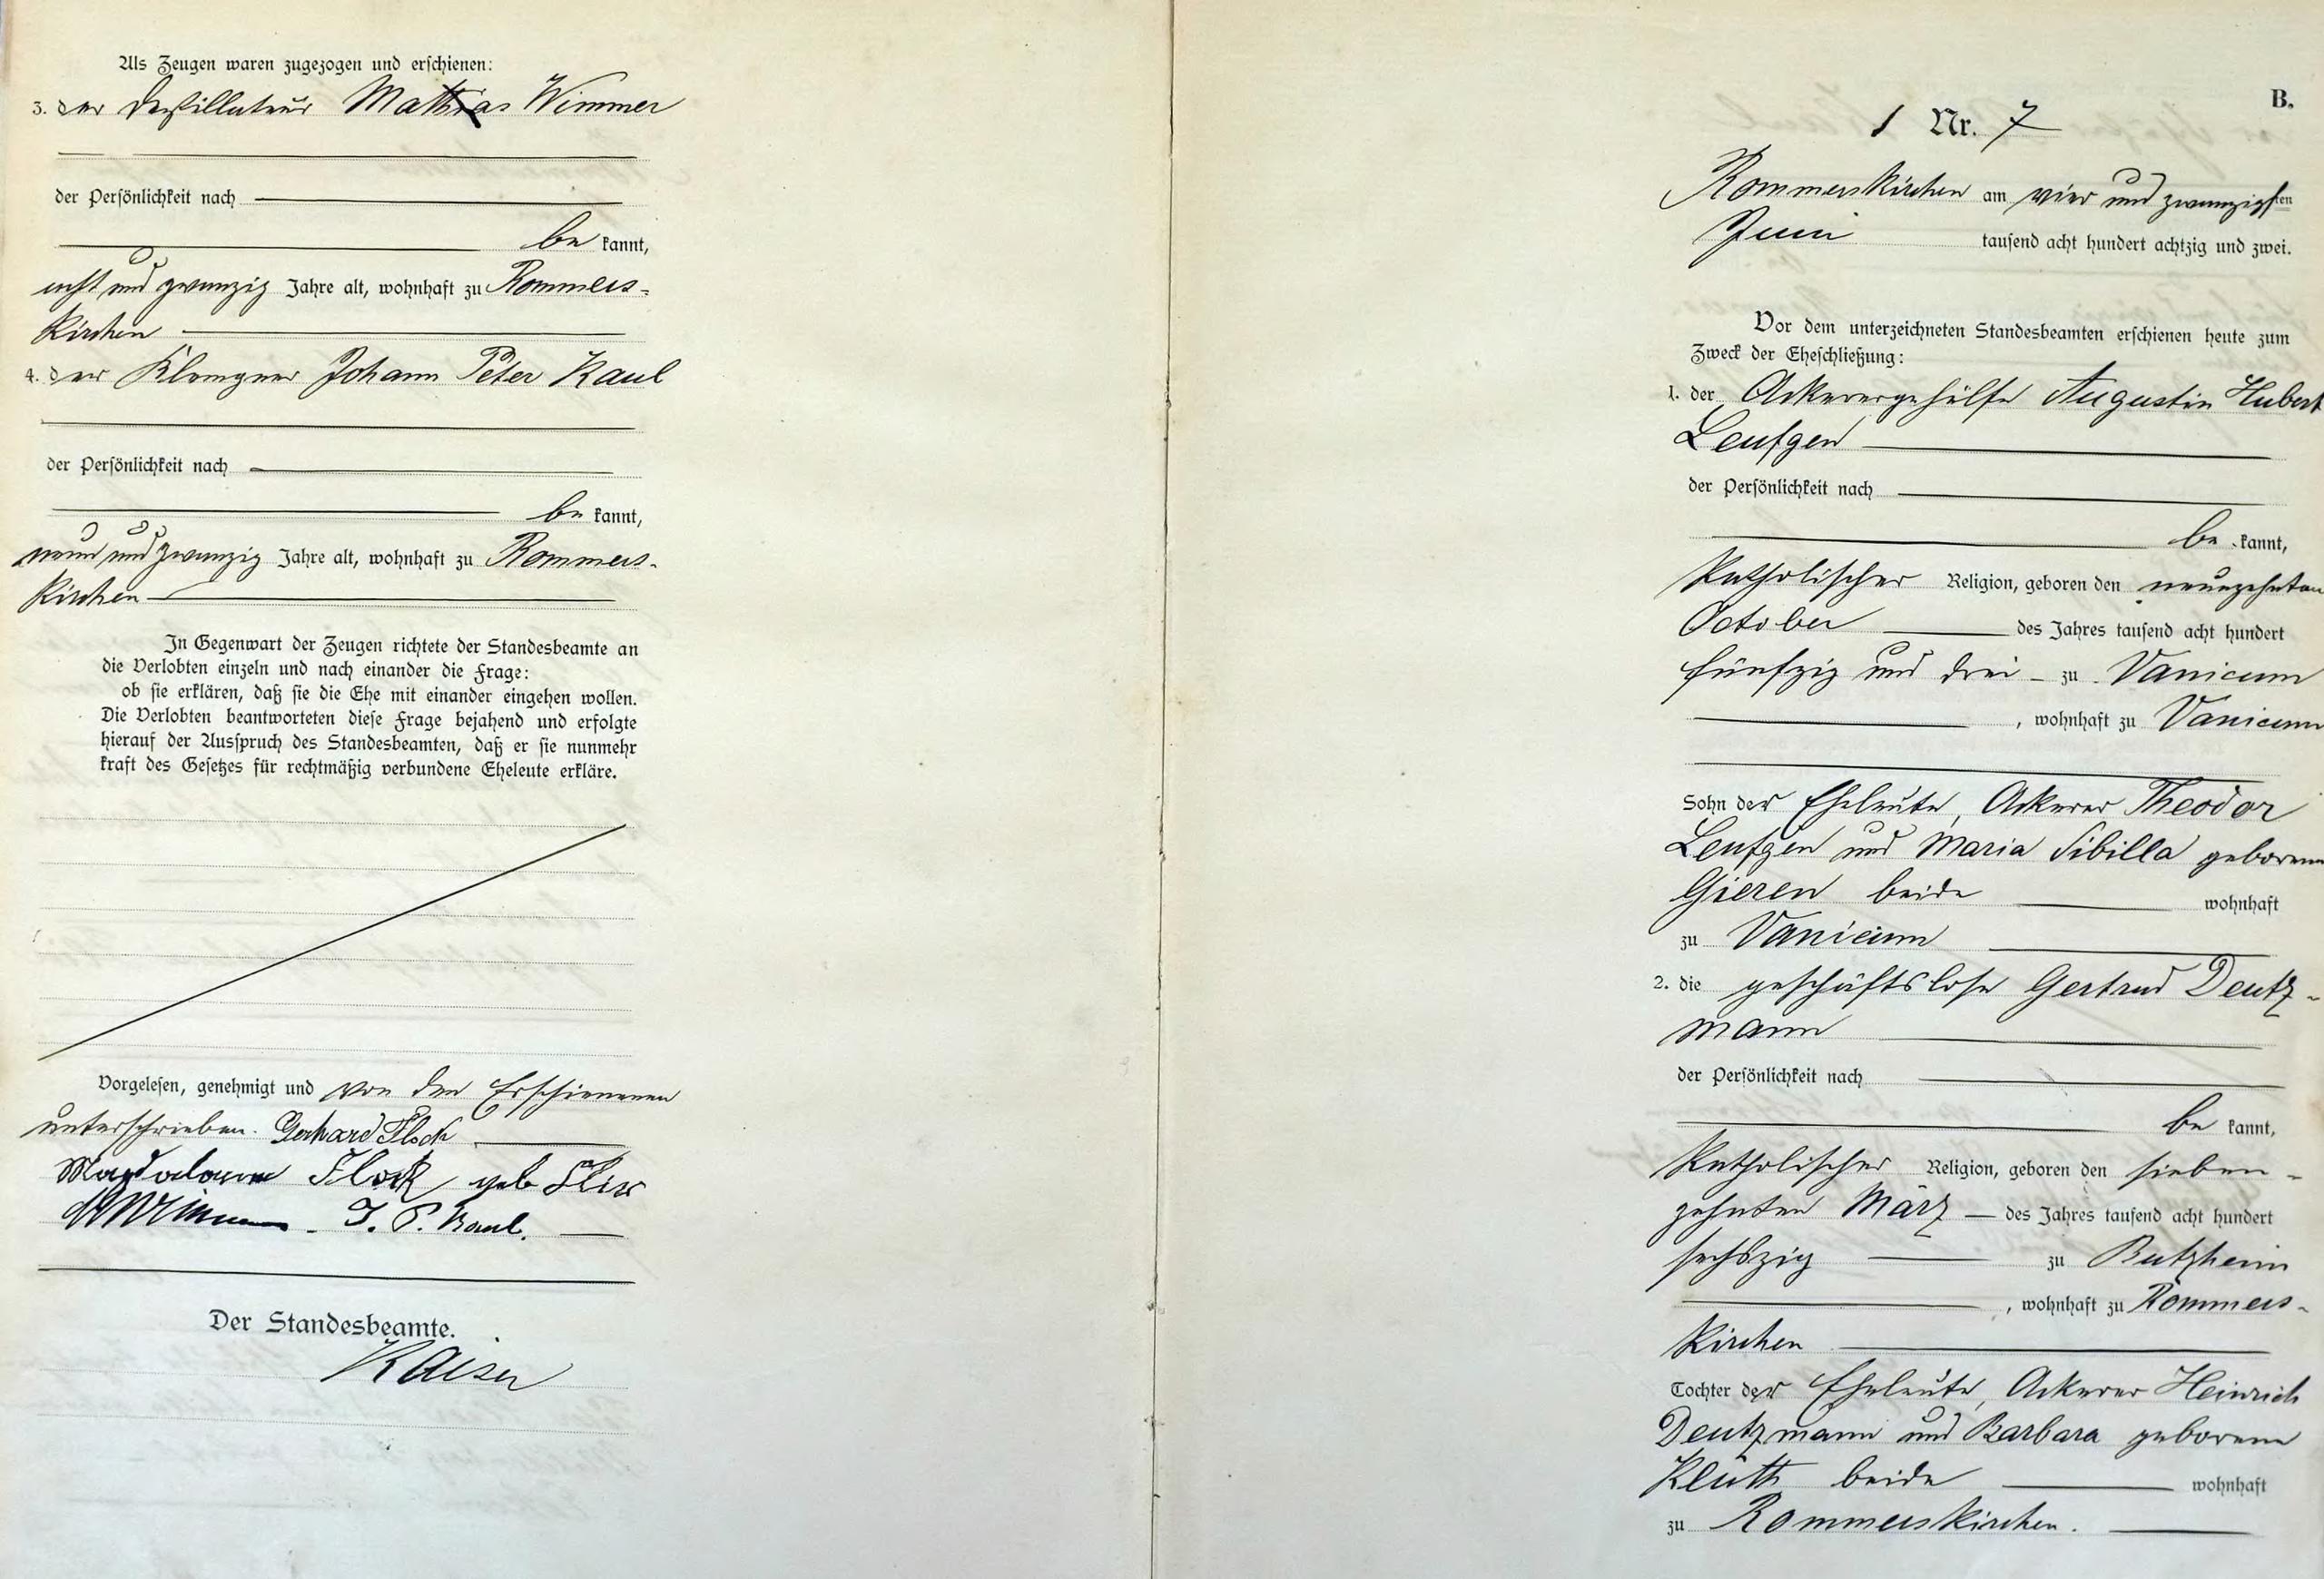 Als Zeugen waren zugezogen und erschienen:
3. der Destillateur Mathias Wimmer
der Persönlichkeit nach
be kannt,
acht und zwanzig Jahre alt, wohnhaft zu Rommers-
kirchen
4. der Klempner Johann Peter Kaul
der Persönlichkeit nach
be kannt,
neun und zwanzig Jahre alt, wohnhaft zu Rommers-
kirchen
In Gegenwart der Zeugen richtete der Standesbeamte an
die Verlobten einzeln und nach einander die Frage:
ob sie erklären, daß sie die Ehe mit einander eingehen wollen.
Die Verlobten beantworteten diese Frage bejahend und erfolgte
hierauf der Ausspruch des Standesbeamten, daß er sie nunmehr
kraft des Gesetzes für rechtmäßig verbundene Eheleute erkläre.
Vorgelesen, genehmigt und von den Erschienenen
unterschrieben. Gerhard Flock
Magdalena Flock geb
Wimmer J. P. Kaul.
Der Standesbeamte.
Kaiser
B.
Nr. 7
Rommerskirchen am vier und zwanzigsten
Juni tausend acht hundert achtzig und zwei.
Vor dem unterzeichneten Standesbeamten erschienen heute zum
Zweck der Eheschließung:
1. der Ackerergehülfe Augustin Hubert
Leufgen
der Persönlichkeit nach
be kannt,
katholischer Religion, geboren den neunzehnten
October des Jahres tausend acht hundert
fünfzig und drei zu Vanicum
, wohnhaft zu Vanicum
Sohn der Eheleute, Ackerer Theodor
Leufgen und Maria Sibilla geborene
Gieren beide wohnhaft
zu Vanicum
2. die geschäftslose Gertrud Deutz-
mann
der Persönlichkeit nach
be kannt,
katholischer Religion, geboren den sieben-
zehnten März des Jahres tausend acht hundert
sechszig zu Butzheim
, wohnhaft zu Rommers-
kirchen
Tochter der Eheleute, Ackerer Heinrich
Deutzmann und Barbara geborene
Klüth beide wohnhaft
zu Rommerskirchen.